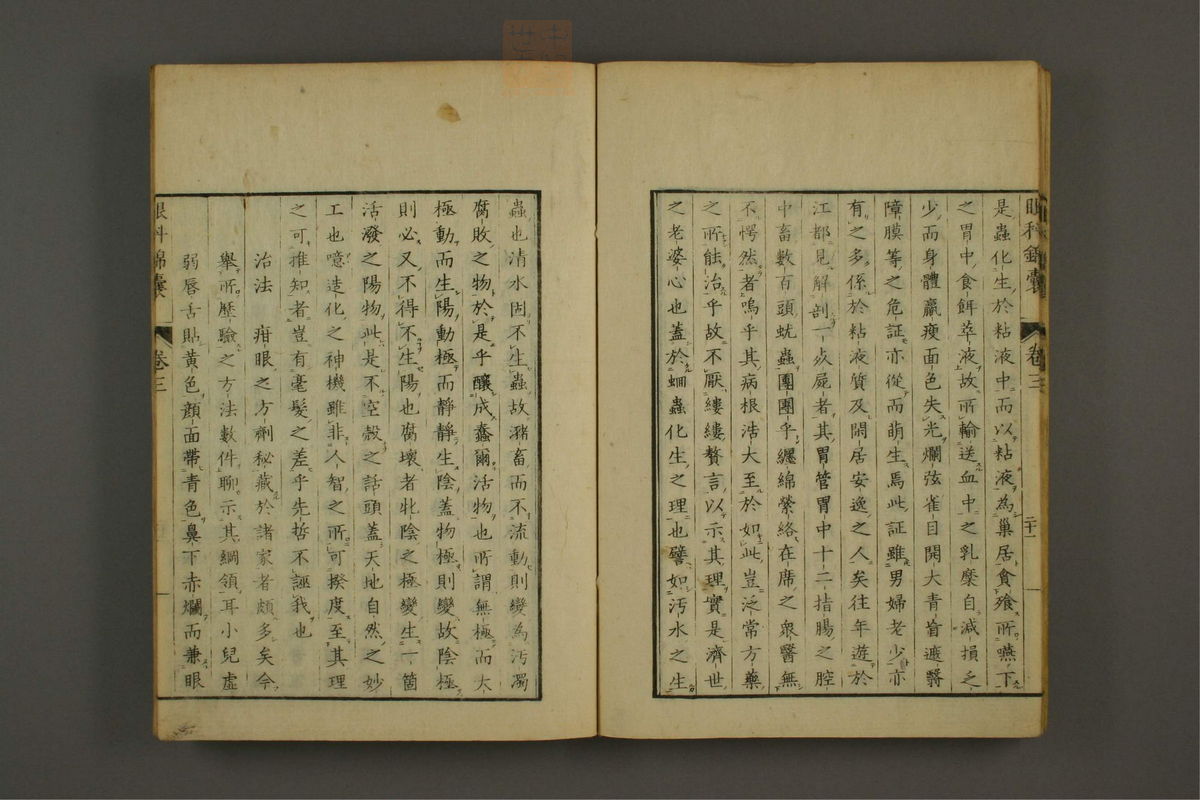 眼科錦囊 卷三 二十一
是蟲化生於粘液中而以粘液為巢居貪飱所嚥下
之胃中食餌萃液故所輸送血中之乳糜自減損乏
少而身體羸瘦面色失光爛弦雀目開大青盲遮翳
障膜等之危証亦從而萌生焉此証雖男婦老少亦
有之多係於粘液質及閑居安逸之人矣往年遊於
江都見解剖一炎屍者其胃管胃中十二指腸之腔
中畜數百頭蚘蟲團團乎纏綿縈絡在席之衆醫無
不愕然者嗚乎其病根浩大至於如此豈泛常方藥
之所能治乎故不厭縷縷贅言以示其理實是濟世
之老婆心也蓋於蛔蟲化生之理也譬如汚水之生
蟲也清水固不生蟲故瀦畜而不流動則變為汚濁
腐敗之物於是乎釀成蠢爾活物也所謂無極而太
極動而生陽動極而靜靜生陰蓋物極則變故陰極
則必又不得不生陽也腐壞者牝陰之極變生一箇
活潑之陽物此是不空殼之話頭蓋天地自然之妙
工也噫造化之神機雖非人智之所可揆度至其理
之可推知者豈有毫髮之差乎先哲不誣我也
治法 疳眼之方劑秘藏於諸家者頗多矣今
舉所歷驗之方法數件聊示其綱領耳小兒虛
弱唇舌貼黃色顏面帶青色鼻下赤爛而兼眼
眼科錦囊 卷三